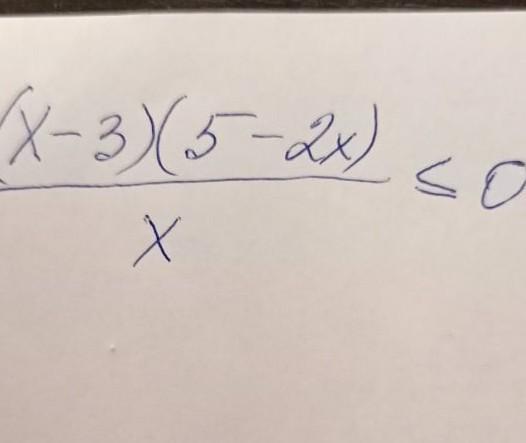 (x-3)(5-2x)
x
≤ 0